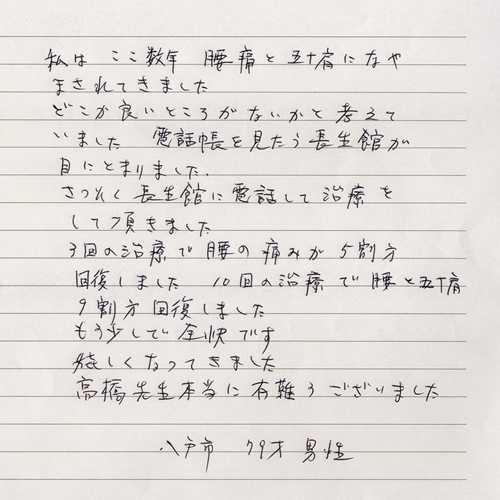 私は ここ数年 腰痛と五十肩になや
まされてきました
どこか良いところがないかと考えて
いました 電話帳を見たら長生館が
目にとまりました.
さっそく長生館に電話して治療を
して頂きました
3回の治療で腰の痛みが5割方
回復しました 10回の治療で腰と五十肩
9割方回復しました
もう少しで全快です
しくなってきました
高橋先生本当に有難うございました
八戸市 79才 男性